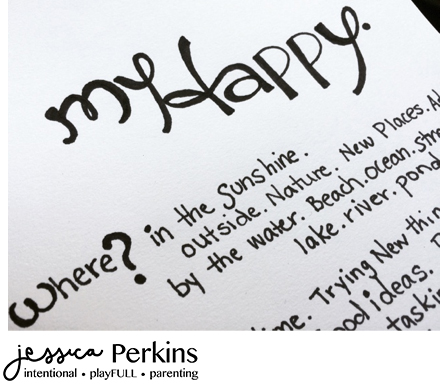 my Happy.
where? in the Sunshine.
outside. Nature. New Places.
by the water. Beach. ocean.
lake. river. pond
Trying New
ideas.
jessica Perkins
intentional • playFULL • parenting